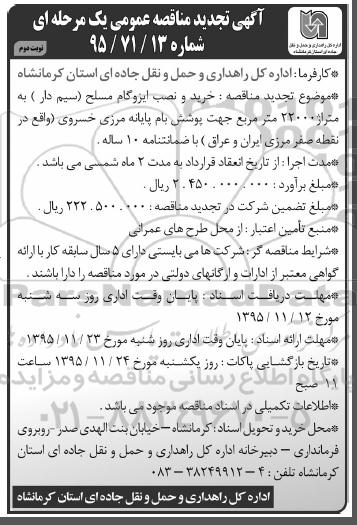 آگهی تجدید مناقصه عمومی یک مرحله ای
شماره ۱۳ / ۷۱ / ۹۵
نوبت دوم
اداره کل راهداری و حمل و نقل
جاده ای استان کرمانشاه
*کارفرما : اداره کل راهداری و حمل و نقل جاده ای استان کرمانشاه
*موضوع تجدید مناقصه : خرید و نصب ایزوگام مسلح (سیم دار ) به
متراژ ۲۲۰۰۰ متر مربع جهت پوشش بام پایانه مرزی خسروی (واقع در
نقطه صفر مرزی ایران و عراق ) با ضمانتنامه ۱۰ ساله .
*مدت اجرا : از تاریخ انعقاد قرارداد به مدت ۲ ماه شمسی می باشد .
*مبلغ برآورد : ۰۰۰ . ۰۰۰ . ۴۵۰ . ۲ ریال .
*مبلغ تضمین شرکت در تجدید مناقصه : ۰۰۰ . ۵۰۰ . ۲۲۲ ریال .
*منبع تأمین اعتبار : از محل طرح های عمرانی
*شرایط مناقصه گر : شرکت ها می بایستی دارای ۵ سال سابقه کار با ارائه
گواهی معتبر از ادارات و ارگانهای دولتی در مورد مناقصه را دارا باشند .
*مهلت دریافت اسناد : پایان وقت اداری روز سه شنبه
مورخ ۱۲ / ۱۱ / ۱۳۹۵
*مهلت ارائه اسناد : پایان وقت اداری روز شنبه مورخ ۲۳ / ۱۱ / ۱۳۹۵
*تاریخ بازگشایی پاکات : روز یکشنبه مورخ ۲۴ / ۱۱ / ۱۳۹۵ ساعت
۱۱ صبح
*اطلاعات تکمیلی در اسناد مناقصه موجود می باشد .
*محل خرید و تحویل اسناد : کرمانشاه – خیابان بنت الهدی صدر – روبروی
فرمانداری – دبیرخانه اداره کل راهداری و حمل و نقل جاده ای استان
کرمانشاه تلفن : ۴ – ۳۸۲۴۹۹۱۲ – ۰۸۳
اداره کل راهداری و حمل و نقل جاده ای استان کرمانشاه